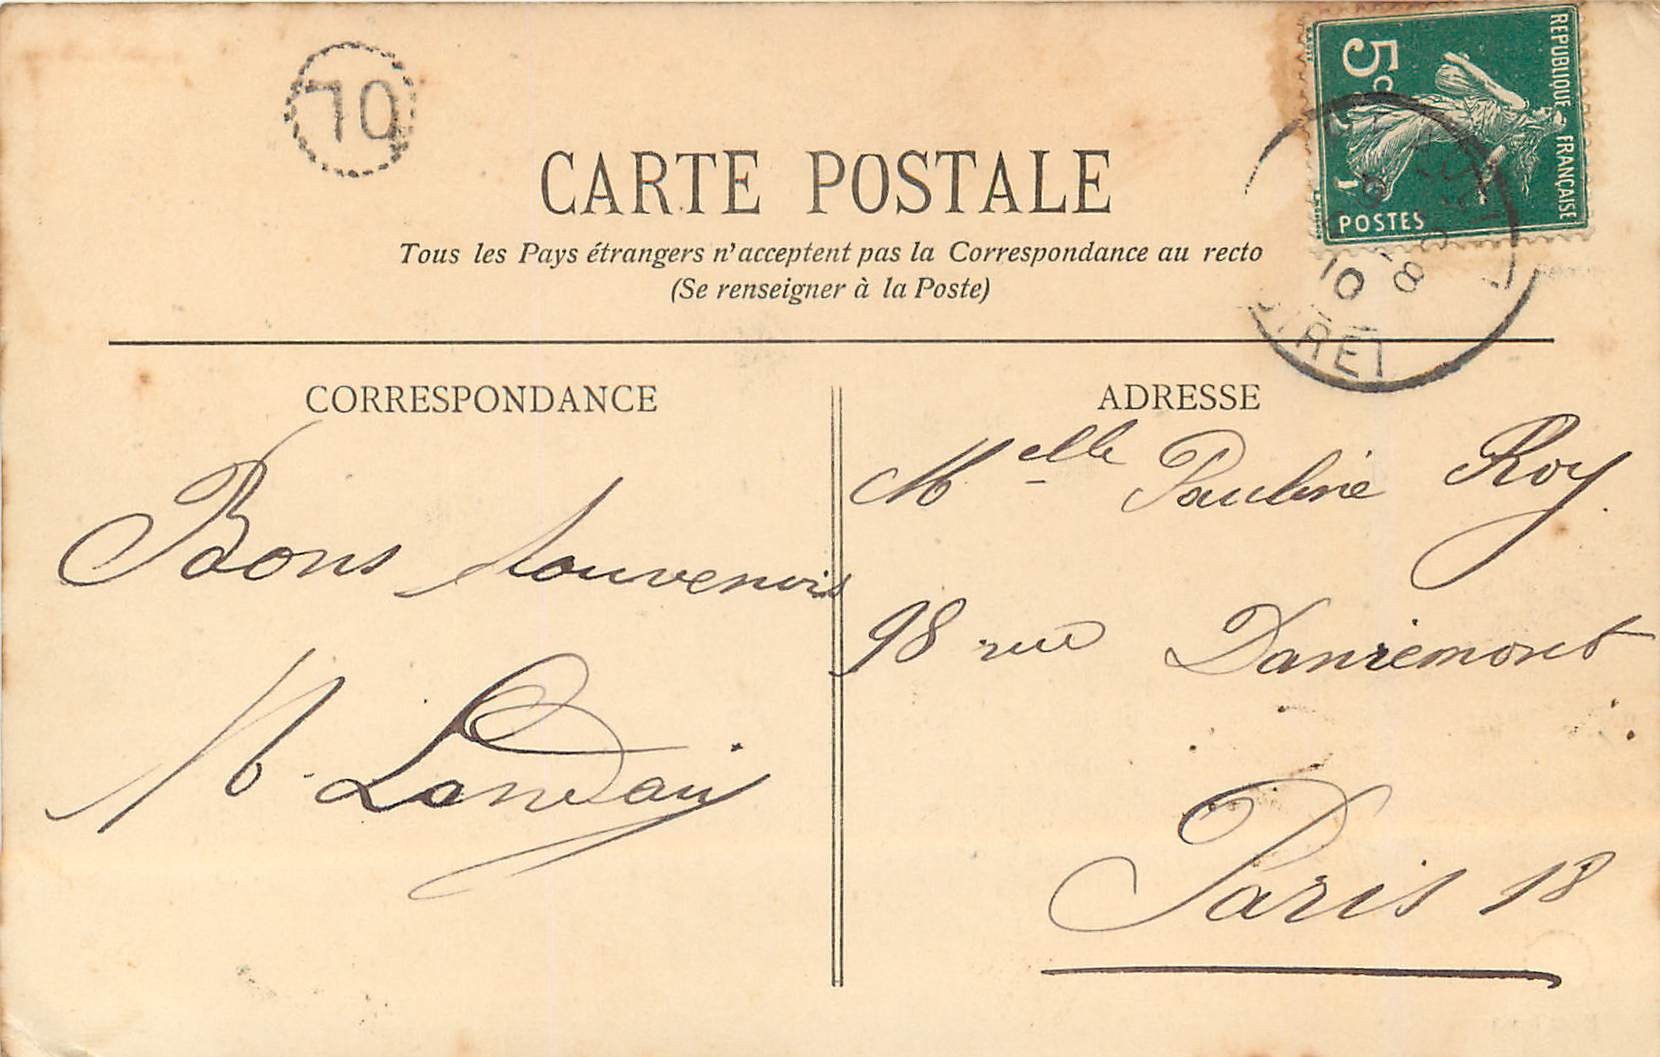 OL
CARTE POSTALE
Tous les Pays étrangers n'acceptent pas la Correspondance au recto
(Se renseigner à la Poste)
5c
REPUBLIQUE FRANÇAISE
POSTES
8
10
CORRESPONDANCE
ADRESSE
Bons Souvenirs
Melle Pauline Roy
98 rue Danrémont
Paris 18